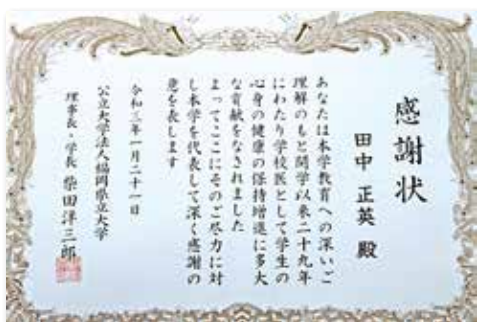 感謝状
田中 正英 殿
あなたは本学教育への深いご
理解のもと開学以来二十九年
にわたり学校医として学生の
心身の健康の保持増進に多大
な貢献をなされました
よってここにそのご尽力に対
し本学を代表して深く感謝の
意を表します
令和三年一月二十一日
公立大学法人福岡県立大学
理事長・学長 柴田洋三郎